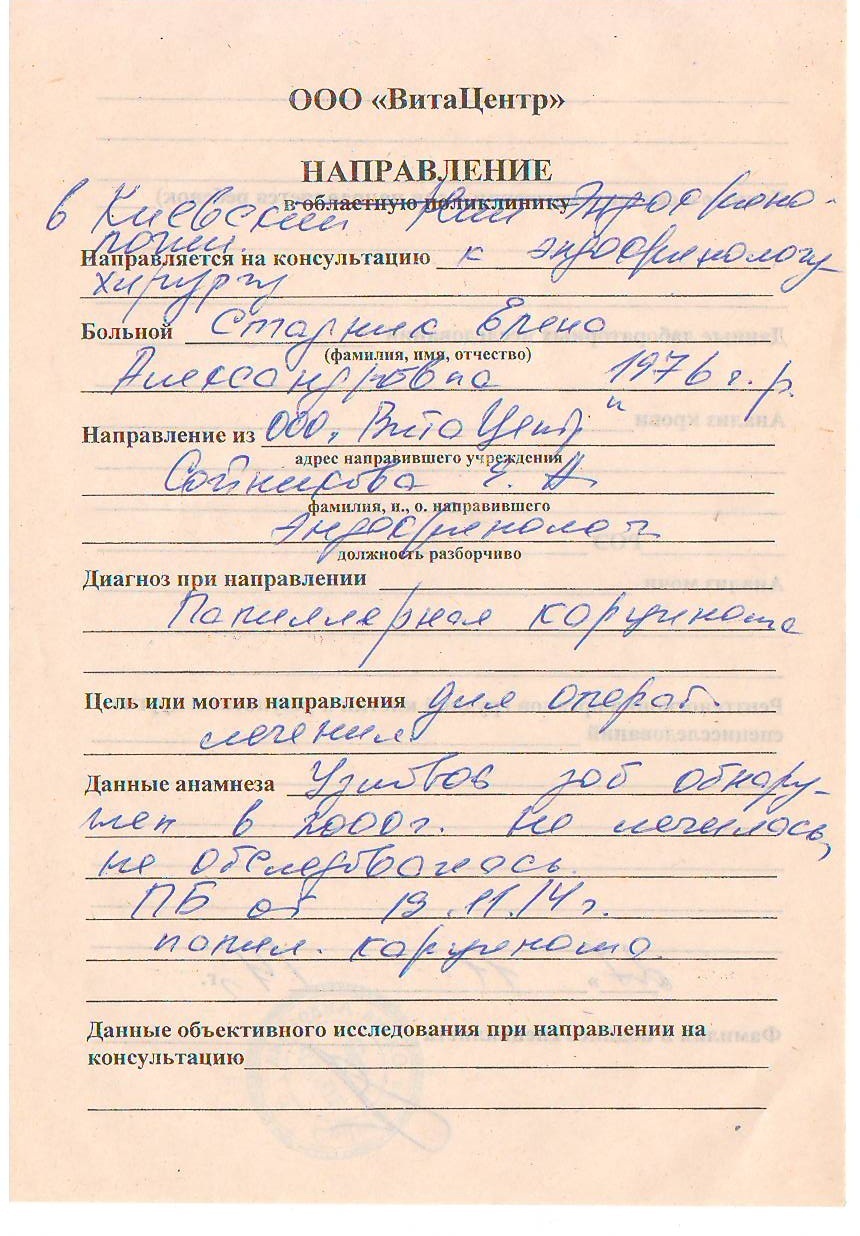 ООО «ВитаЦентр»
НАПРАВЛЕНИЕ
в областную поликлинику
в Киевский Эндокрино-
логии.
Направляется на консультацию к эндокринологу
хирургу
Больной Старник Елена
(фамилия, имя, отчество)
Александровна 1976 г.р.
Направление из ООО „ВитаЦентр"
адрес направившего учреждения
Сойникова Е. А
фамилия, и., о. направившего
Эндокринолог
должность разборчиво
Диагноз при направлении
Папиллярная карцинома
Цель или мотив направления для операт.
лечения
Данные анамнеза Узловой зоб обнару-
жен в 2000г. Не лечилась,
не обследовалась.
ПБ от 19.11.14г.
папил. карцинома
Данные объективного исследования при направлении на
консультацию